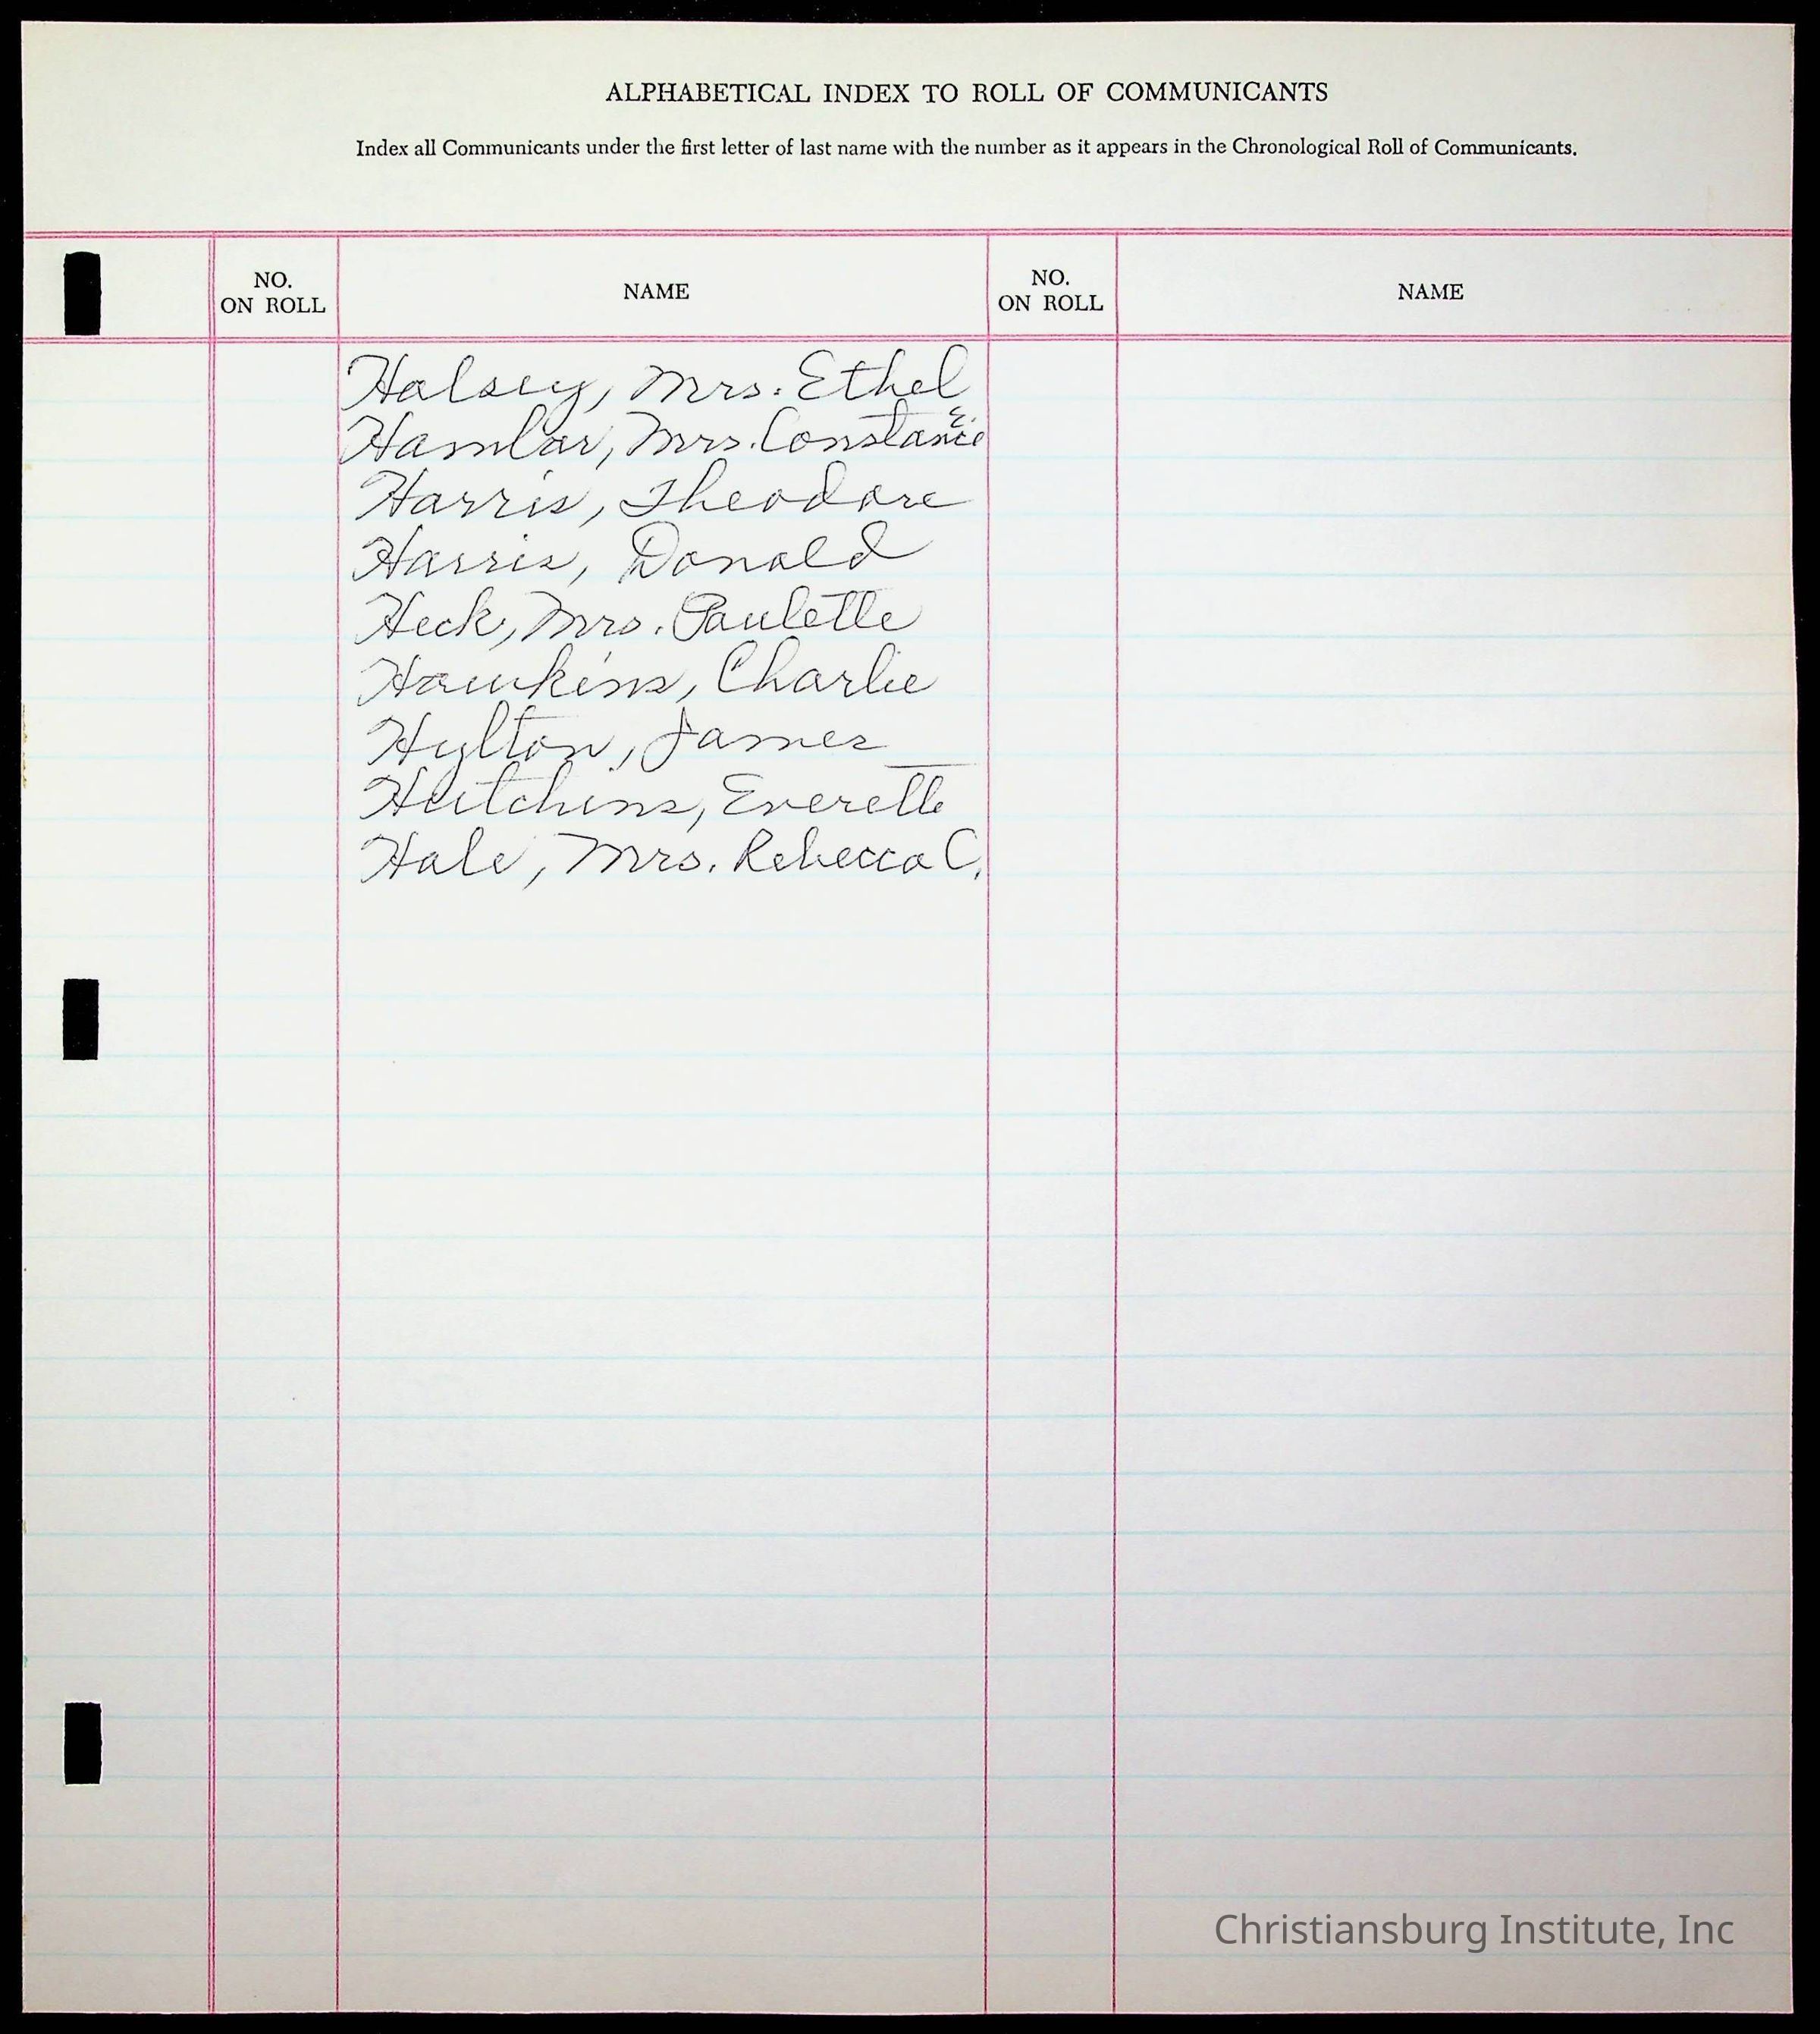 ALPHABETICAL INDEX TO ROLL OF COMMUNICANTS
Index all Communicants under the first letter of last name with the number as it appears in the Chronological Roll of Communicants.
NO. ON ROLL NAME NO. ON ROLL NAME
Halsey, Mrs. Ethel
Hamlar, Mrs. Constance E.
Harris, Theodore
Harris, Donald
Heck, Mrs. Paulette
Hawkins, Charlie
Hylton, James
Hutchins, Everette
Hale, Mrs. Rebecca C.
Christiansburg Institute, Inc